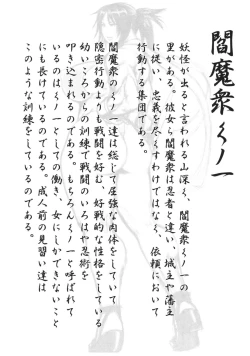 閻魔衆くノ一
妖怪が出ると言われる山深く、閻魔衆くノ一の
里がある。彼女ら閻魔衆は忍者と違い、城主や藩主
に従い、忠義を尽くすわけではなく、依頼において
行動する集団である。
閻魔衆のくノ一達は総じて屈強な肉体をしていて
隠密行動よりも戦闘を好む、好戦的な性格をしている
幼いころからの訓練で戦闘のいろはや忍術を
叩き込まれるのである。もちろんくノ一と呼ばれて
いるのはくノ一としての働き、女にしかできないこと
にも長けているのである。成人前の見習い達は
このような訓練をしているのである。